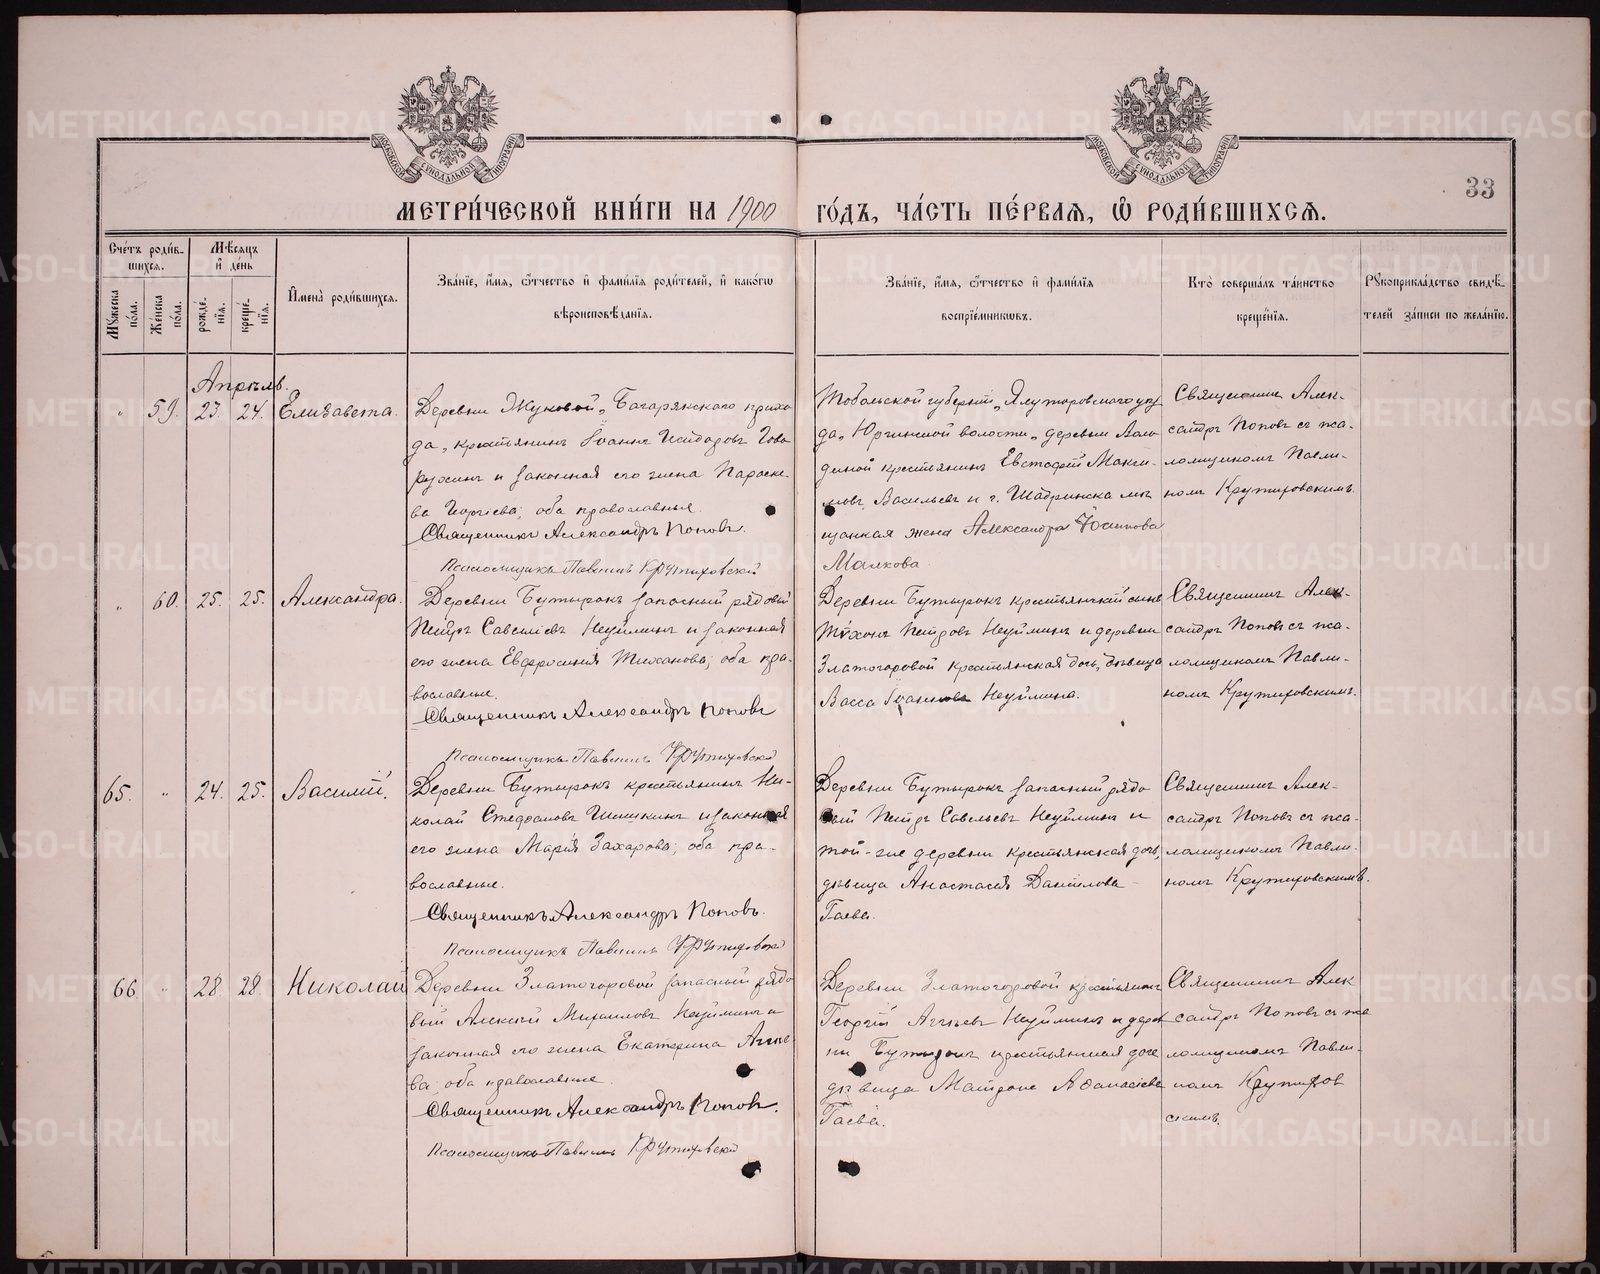 МОСКОВСКОЙ СѴНОДАЛЬНОЙ ТИПОГРАФІИ
МОСКОВСКОЙ СѴНОДАЛЬНОЙ ТИПОГРАФІИ
33
МЕТРИ́ЧЕСКОЙ КНИ́ГИ НА 1900 ГО́ДЪ, ЧА́СТЬ ПЕ́РВАЯ, Ѡ҆ РОДИ́ВШИХСЯ.
Сче́тъ роди́в-
шихся.
Мѣ́сяцъ
и҆ де́нь
Му́жеска по́ла.
Же́нска по́ла.
рожде́нїя.
креще́нїя.
И҆мена̀ роди́вшихся.
Зва́нїе, и҆́мя, ѻ҆́тчество и҆ фами́лїя роди́телей, и҆ како́гѡ
вѣроисповѣ́данїя.
Зва́нїе, и҆́мя, ѻ҆́тчество и҆ фами́лїя
воспрїе́мникѡвъ.
Кто̀ соверша́лъ та́инство
креще́нїя.
Рукоприкла́дство свидѣ́-
телей за́писи по жела́нїю.
Апрѣль.
„ 59. 23. 24. Елизавета.
Деревни Жуковой, Багарякскаго прихо
да, крестьянинъ Іоаннъ Исидоровъ Гова
рухинъ и законная его жена Параске-
ва Георгіева; оба православные.
Священникъ Александръ Поповъ.
Псаломщикъ Павлинъ Крутиховскій
Тобольской губерніи, Ялуторовскаго уѣз
да, Юргинской волости, деревни
крестьянинъ Евстафій Макси-
мовъ Васильевъ и г. Шадринска мѣ
щанская жена Александра Іосипова
Малкова
Священникъ Алек-
сандръ Поповъ съ пса-
ломщикомъ Павли-
номъ Крутиховскимъ.
„ 60. 25. 25. Александра.
Деревни Бутырокъ запасный рядовый
Петръ Савельевъ Неуйминъ и законная
его жена Евфросинія Тиханова; оба пра-
вославные.
Священникъ Александръ Поповъ
Псаломщикъ Павлинъ Крутиховскій
Деревни Бутырокъ крестьянскій сынъ
Тихонъ Петровъ Неуйминъ и деревни
Златогоровой крестьянская дочь, дѣвица
Васса Іоаннова Неуймина.
Священникъ Алек-
сандръ Поповъ съ пса-
ломщикомъ Павли-
номъ Крутиховскимъ.
65. „ 24. 25. Василій.
Деревни Бутырокъ крестьянинъ Ни-
колай Стефановъ Шишкинъ и законная
его жена Марія Захарова; оба пра-
вославные.
Священникъ Александръ Поповъ.
Псаломщикъ Павлинъ Крутиховскій
Деревни Бутырокъ запасный рядо
вый Петръ Савельевъ Неуйминъ и
той-же деревни крестьянская дочь,
дѣвица Анастасія Данилова
Гаева.
Священникъ Алек-
сандръ Поповъ съ пса-
ломщикомъ Павли-
номъ Крутиховскимъ.
66 „ 28 28. Николай
Деревни Златогоровой запасный рядо
вый Алексій Михаиловъ Неуйминъ и
законная его жена Екатерина Аггее
ва; оба православные.
Священникъ Александръ Поповъ.
Псаломщикъ Павлинъ Крутиховскій
Деревни Златогоровой крестьянинъ
Георгій Аггѣевъ Неуйминъ и дерев
ни Бутырокъ крестьянская дочь
дѣвица Матрона Афанасіева
Гаева.
Священникъ Алек
сандръ Поповъ съ пса
ломщикомъ Павли-
номъ Крутихов
скимъ.
METRIKI.GASO-URAL.RU